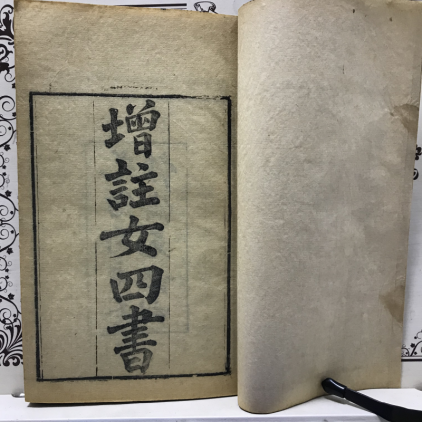 增註女四書